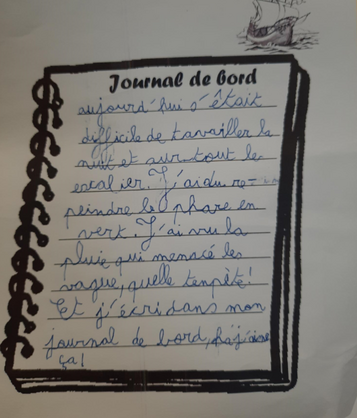 Journal de bord
aujourd'hui s'était
difficile de tavailler la
nuit et sur tout le
escalier. J'ai du re-
peindre le phare en
vert. J'ai vu la
pluie qui menacé les
vague, quelle tempête!
Et j'écri dans mon
journal de bord, j'aime
ça!